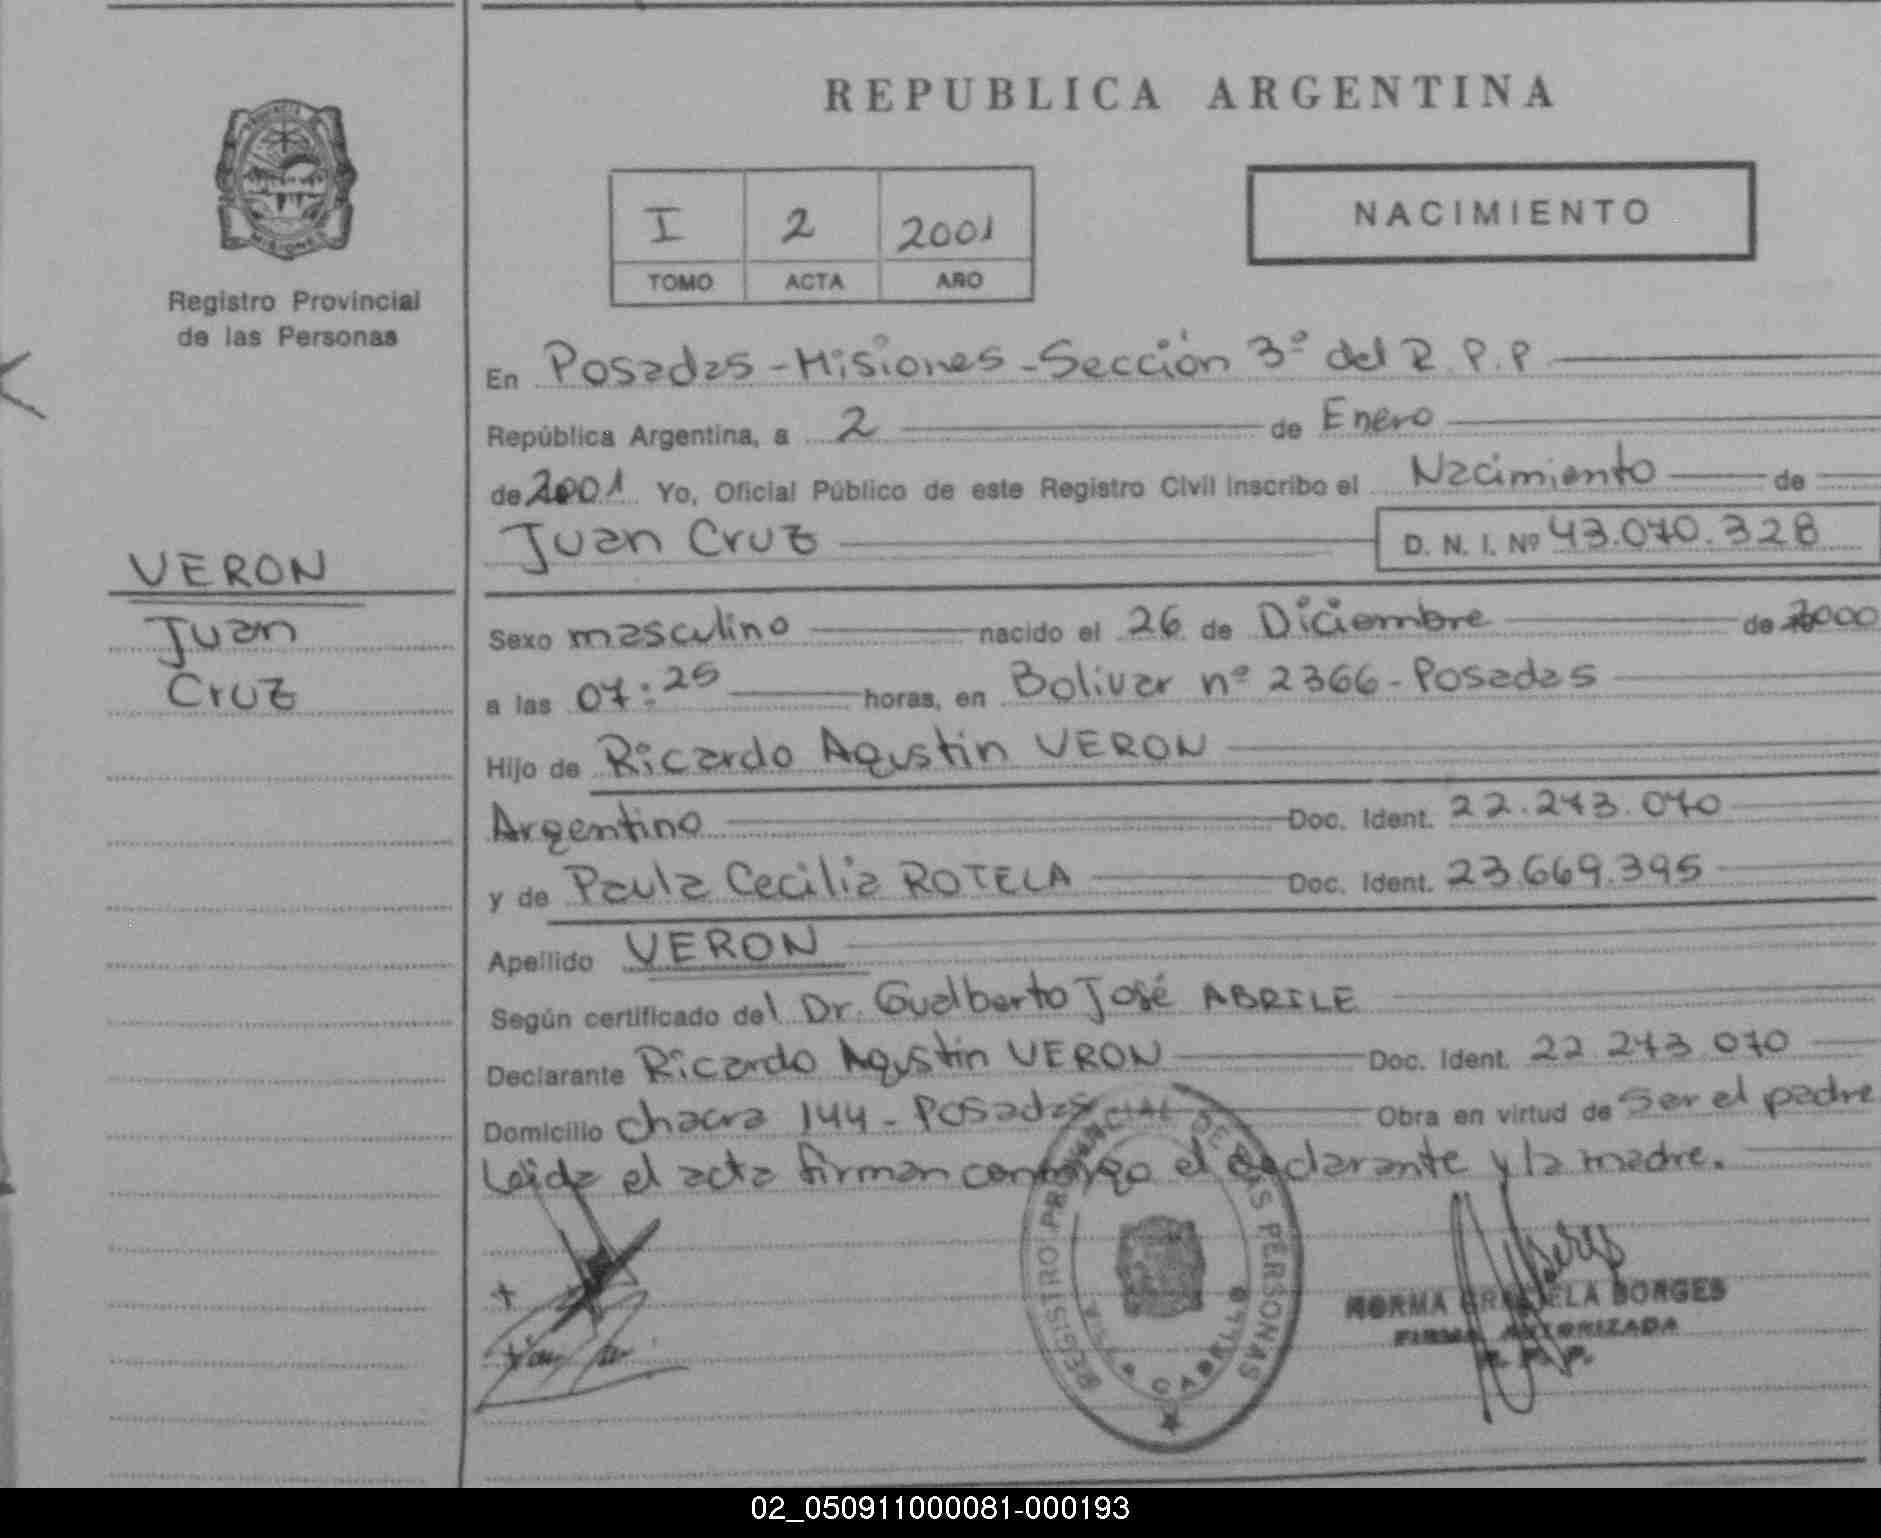 REPUBLICA ARGENTINA
PROVINCIA
MISIONES
Registro Provincial
de las Personas
I 2 2001
TOMO ACTA AÑO
NACIMIENTO
En Posadas - Misiones - Sección 3º del R.P.P
República Argentina, a 2 de Enero
de 2001 Yo, Oficial Público de este Registro Civil inscribo el Nacimiento de
Juan Cruz D. N. I. Nº 43.070.328
VERON
Juan
Cruz
Sexo masculino nacido el 26 de Diciembre de 2000
a las 07:25 horas, en Bolivar nº 2366 - Posadas
Hijo de Ricardo Agustin VERON
Argentino Doc. Ident. 22.243.070
y de Paula Cecilia ROTELA Doc. Ident. 23.669.395
Apellido VERON
Según certificado del Dr. Gualberto José ABRILE
Declarante Ricardo Agustin VERON Doc. Ident. 22.243.070
Domicilio chacra 144 - Posadas Obra en virtud de ser el padre
Leida el acta firman conmigo el declarante y la madre.
REGISTRO PROVINCIAL DE LAS PERSONAS
VILLA CABELLO
NORMA GRACIELA BORGES
FIRMA AUTORIZADA
R. P. P.
02_050911000081-000193